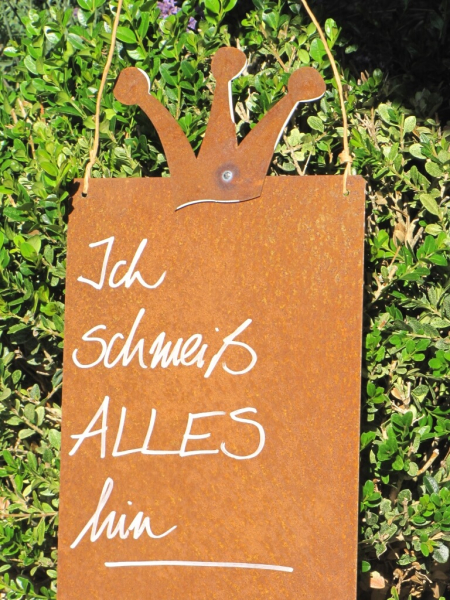 Ich
schmeiß
ALLES
hin